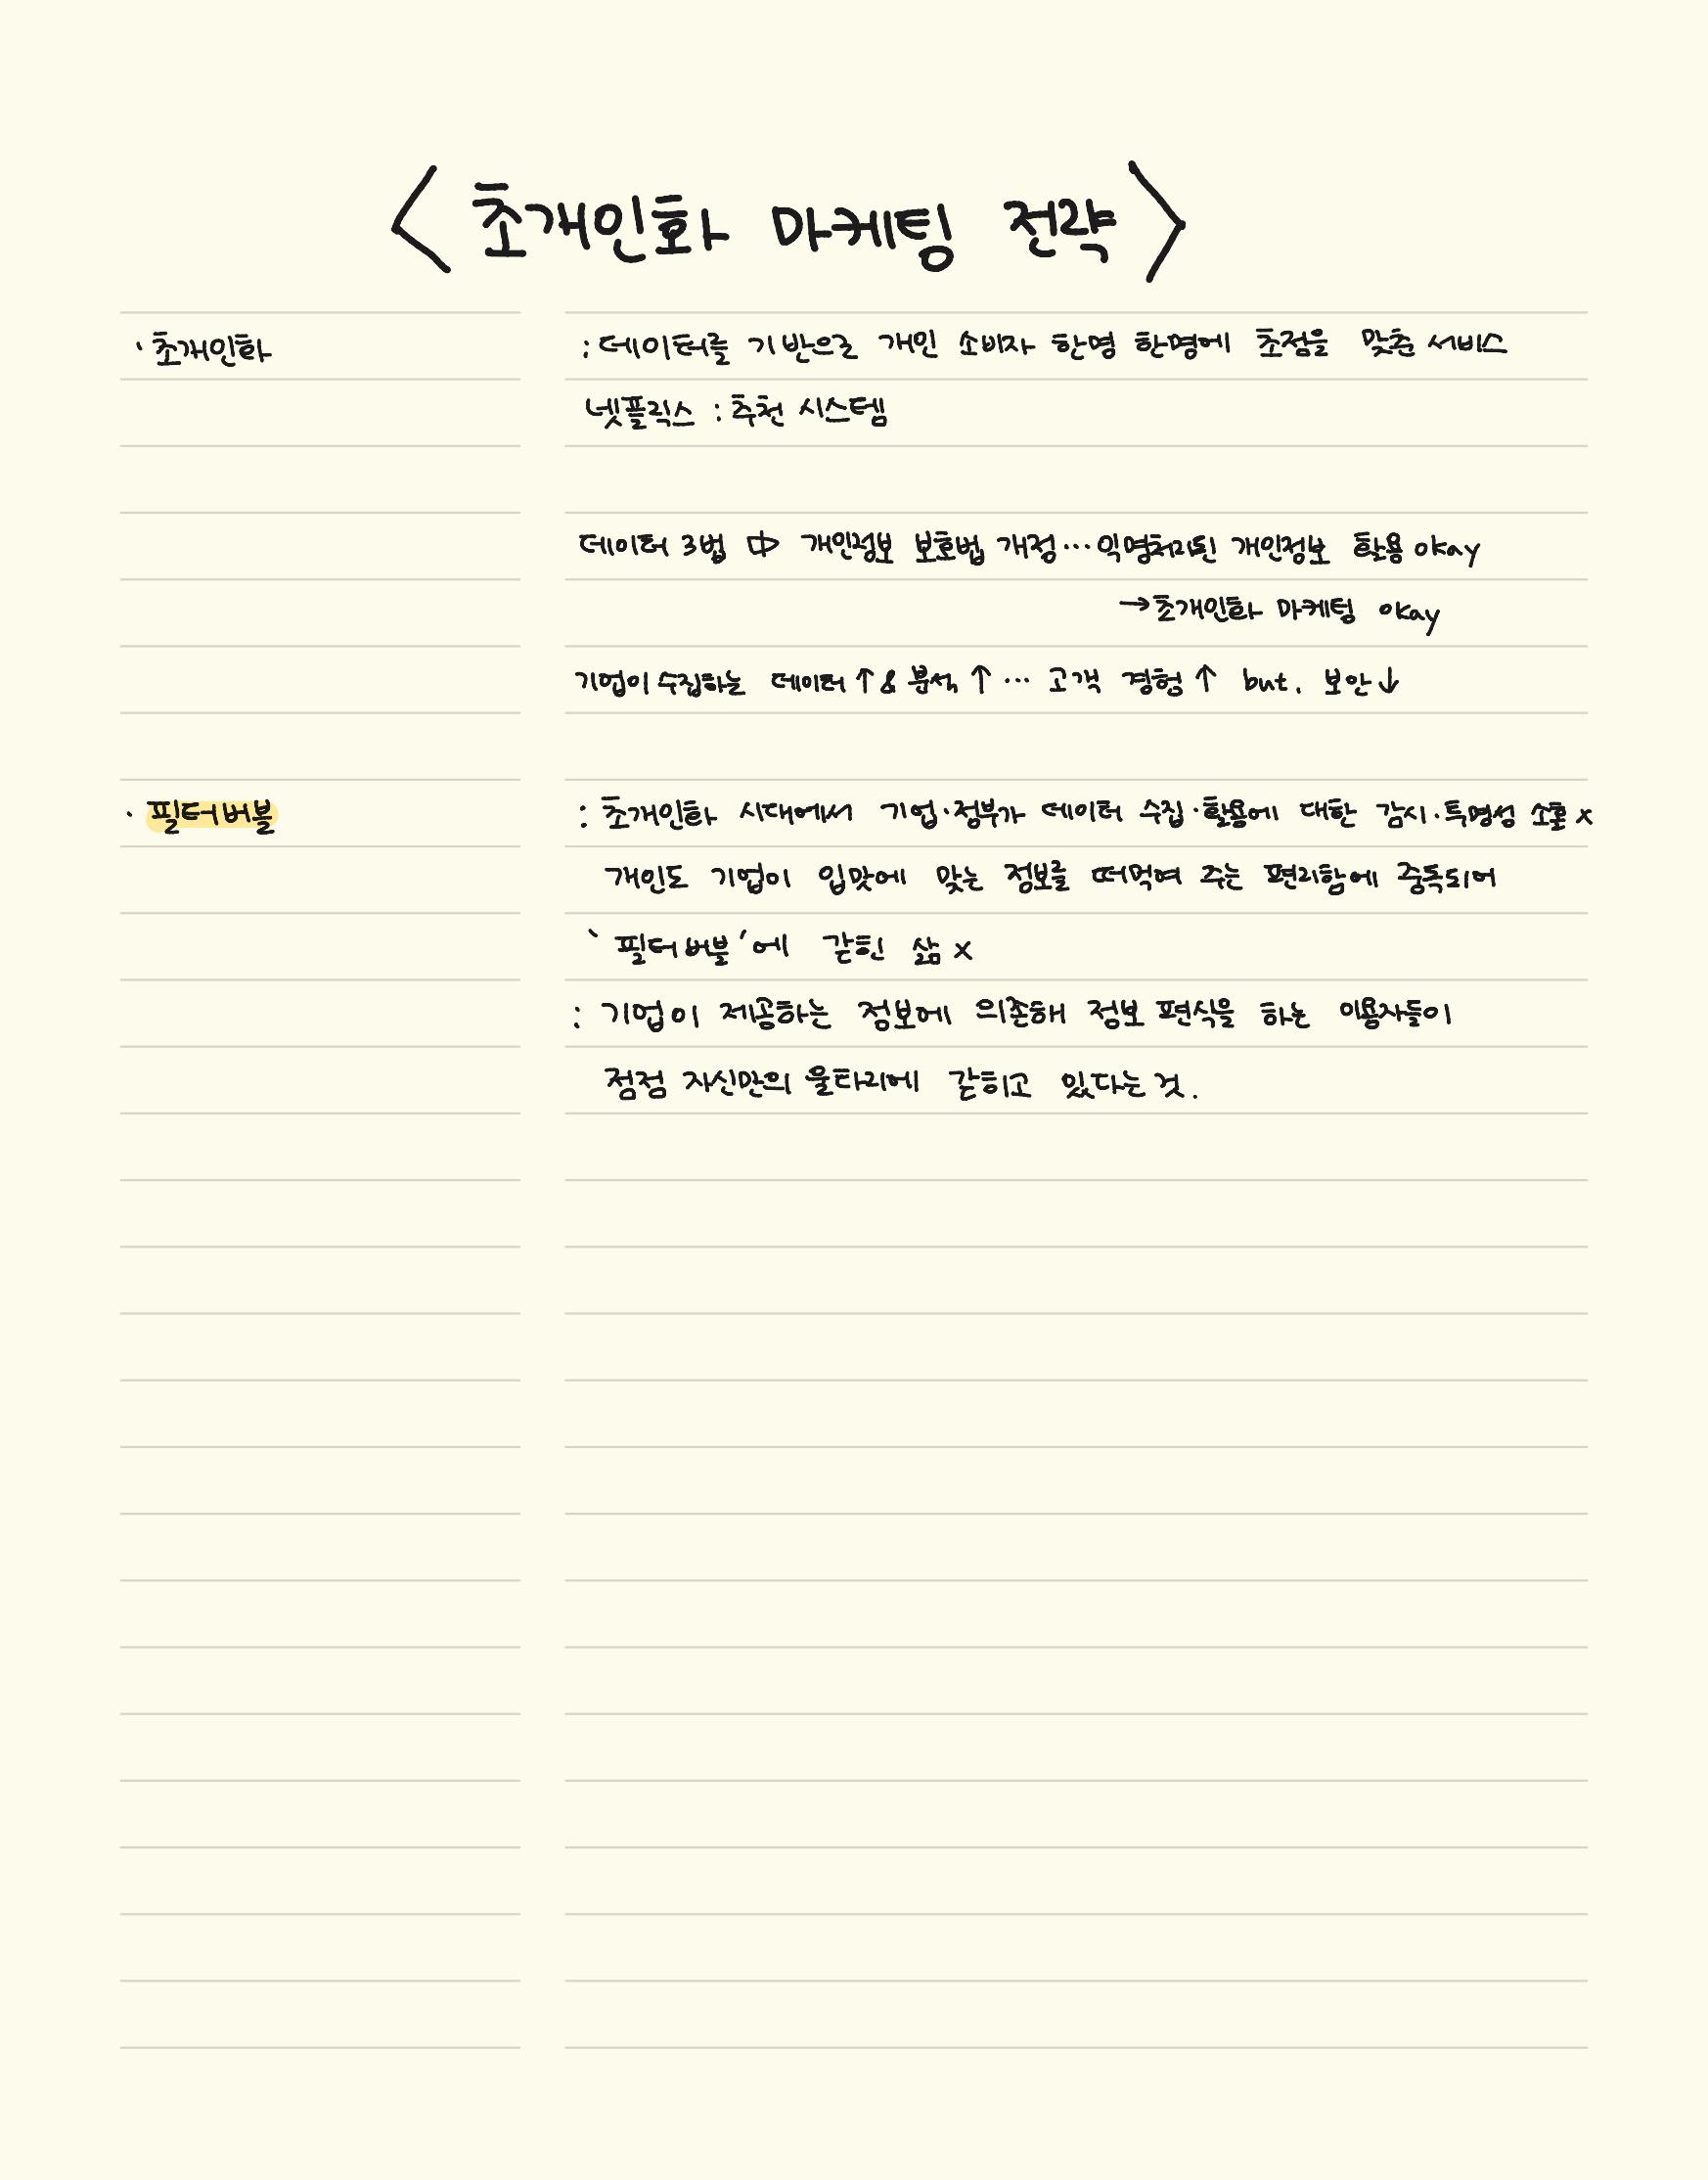 < 초개인화 마케팅 전략 >
· 초개인화 : 데이터를 기반으로 개인 소비자 한명 한명에 초점을 맞춘 서비스
넷플릭스 : 추천 시스템
데이터 3법 ⇨ 개인정보 보호법 개정… 익명처리된 개인정보 활용 okay
→ 초개인화 마케팅 okay
기업이 수집하는 데이터↑ & 분석↑ … 고객 경험↑ but. 보안↓
· 필터버블 : 초개인화 시대에서 기업·정부가 데이터 수집·활용에 대한 감시·투명성 소홀 x
개인도 기업이 입맛에 맞는 정보를 떠먹여 주는 편리함에 중독되어
`필터버블'에 갇힌 삶 x
: 기업이 제공하는 정보에 의존해 정보 편식을 하는 이용자들이
점점 자신만의 울타리에 갇히고 있다는 것.